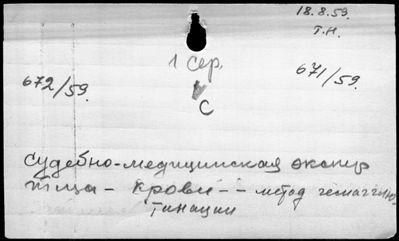 18.8.59.
Т.Н.
1 сер.
672/59.
671/59.
С
судебно-медицинская экспер
тиза - крови - - метод гемагглю-
тинации